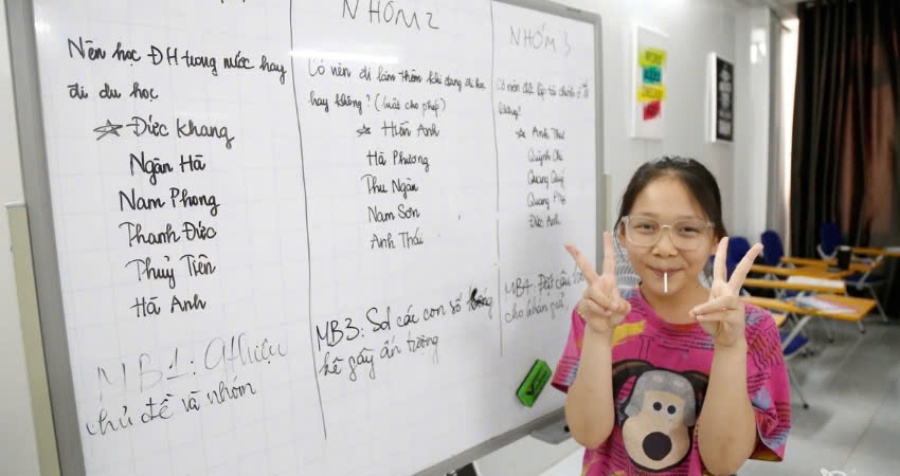 Nên học ĐH trong nước hay
đi du học
☆ Đức Khang
Ngân Hà
Nam Phong
Thanh Đức
Thuỷ Tiên
Hà Anh
MB1: Giới thiệu
chủ đề và nhóm
NHÓM 2
Có nên đi làm thêm khi đang đi học
hay không? (luật cho phép)
☆ Hiền Anh
Hà Phương
Thu Ngân
Nam Sơn
Anh Thái
MB3: Sd các con số thống
kê gây ấn tượng
NHÓM 3
Có nên độc lập tài chính ở
không?
☆ Anh Thư
Quỳnh Chi
Quang Quý
Quang
Đức Anh
MB4: Đặt câu
cho khán giả